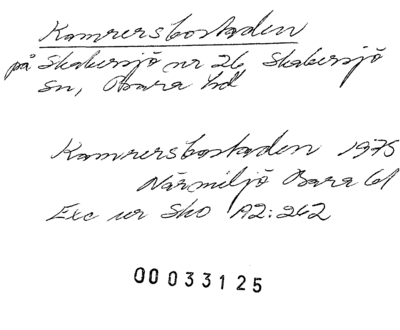 Kamrersbostaden
på Skabersjö nr 26, Skabersjö
sn, Bara hd
Kamrersbostaden 1975
Närmiljö Bara 61
Exc ur Sko A2:262
00033125